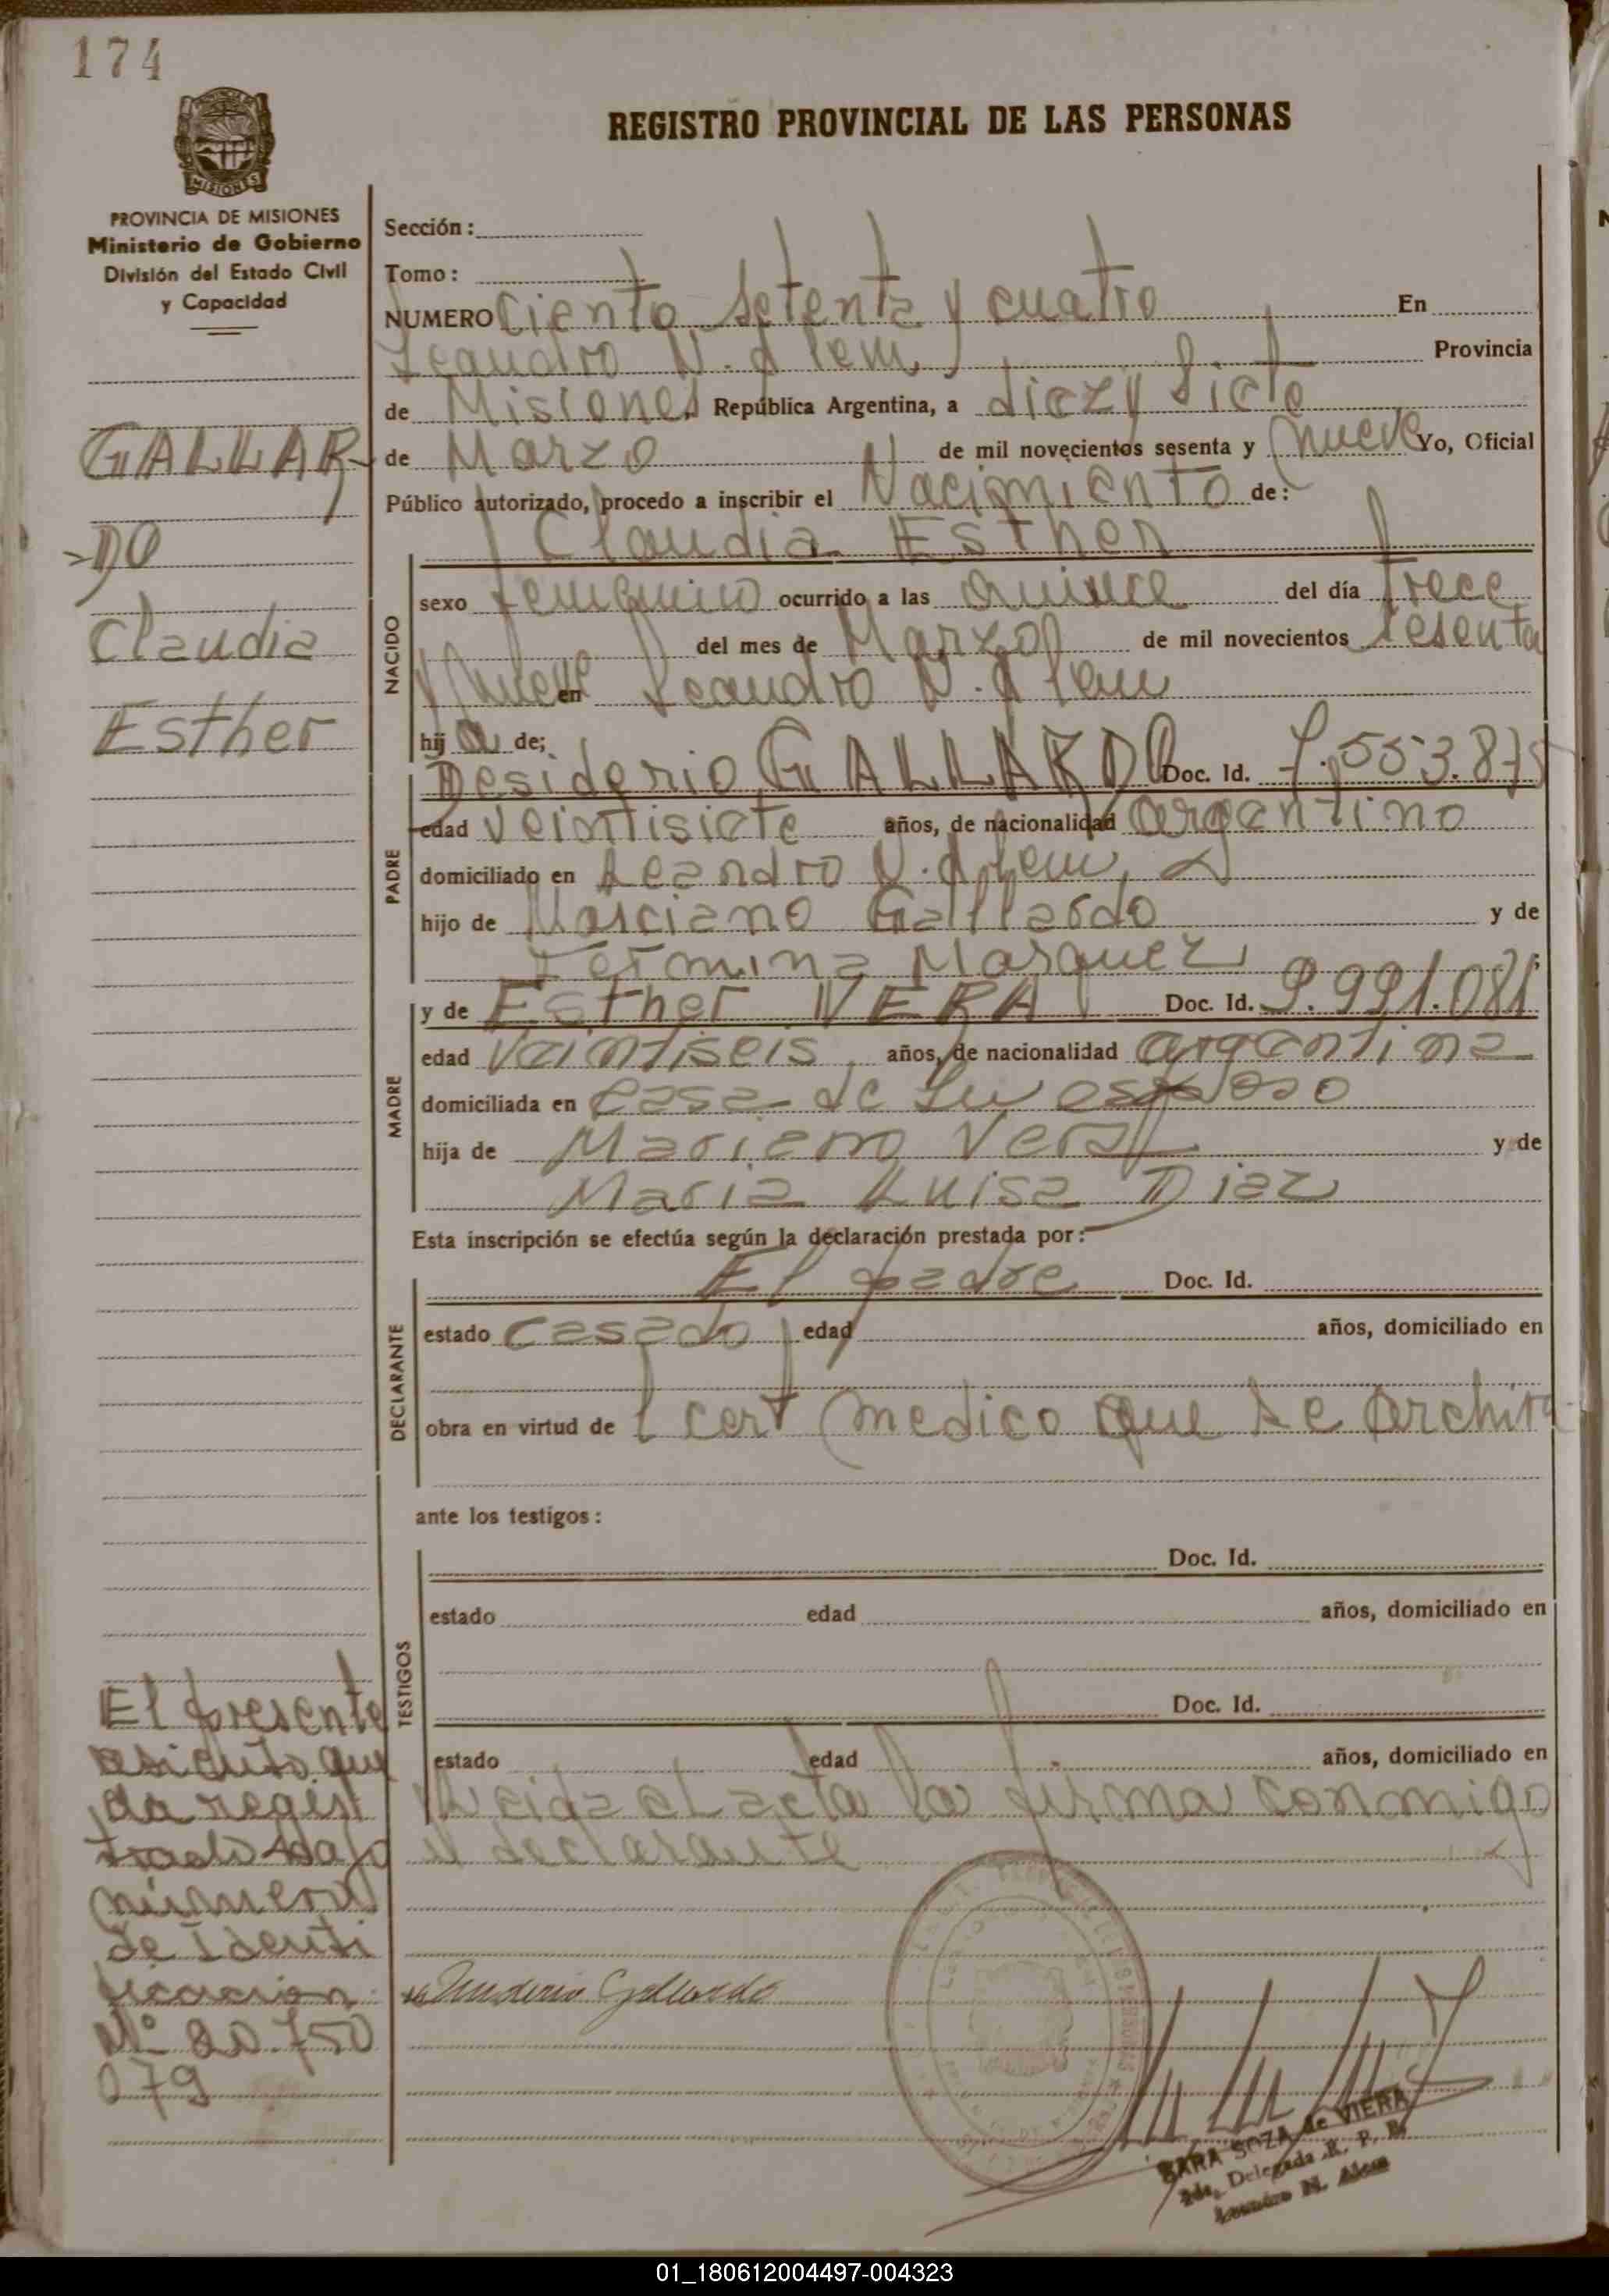 174
REGISTRO PROVINCIAL DE LAS PERSONAS
MISIONES
PROVINCIA DE MISIONES
Ministerio de Gobierno
División del Estado Civil
y Capacidad
GALLAR-
-DO
Claudia
Esther
Sección:
Tomo:
NUMERO Ciento Setenta y cuatro En
Leandro N. Alem Provincia
de Misiones República Argentina, a diez y siete
de Marzo de mil novecientos sesenta y nueve Yo, Oficial
Público autorizado, procedo a inscribir el Nacimiento de:
Claudia Esther
NACIDO
sexo femenino ocurrido a las quince del día trece
del mes de Marzo de mil novecientos sesenta
y nueve en Leandro N. Alem
hij a de;
PADRE
Desiderio GALLARDO Doc. Id. 7.553.875
edad veintisiete años, de nacionalidad argentino
domiciliado en Leandro N. Alem
hijo de Marciano Gallardo y de
Fermina Marquez
MADRE
y de Esther VERA Doc. Id. 9.991.081
edad Veintiseis años, de nacionalidad argentina
domiciliada en casa de su esposo
hija de Mariano Vera y de
Maria Luisa Diaz
Esta inscripción se efectúa según la declaración prestada por:
DECLARANTE
El padre Doc. Id.
estado casado edad años, domiciliado en
obra en virtud de l cert medico que se archiva
ante los testigos:
TESTIGOS
Doc. Id.
estado edad años, domiciliado en
Doc. Id.
estado edad años, domiciliado en
Leida el acta la firma conmigo
el declarante
El presente
asiento que
da regis
trado bajo
número
de Identi
ficacion
Nº 20.750
079
Gallardo
SARA SOZA de VIERA
Delegada R. P. P.
Leandro N. Alem
01_180612004497-004323